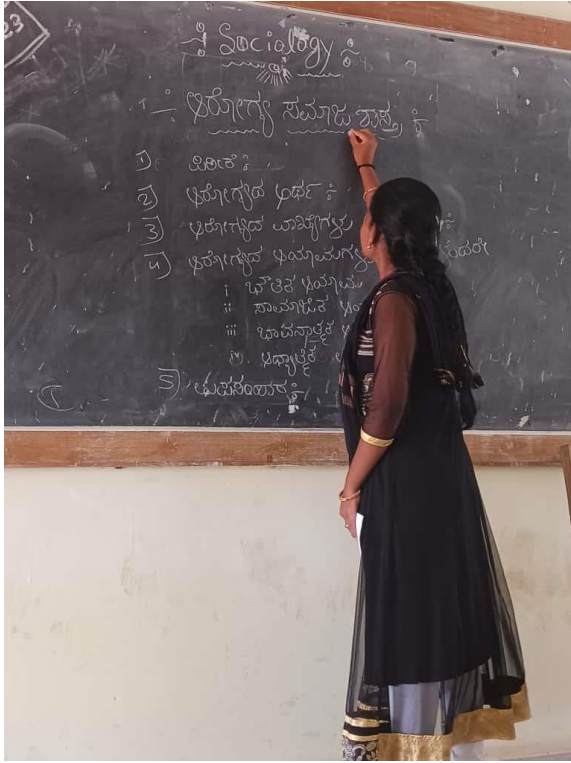 23
Sociology
ಆರೋಗ್ಯ ಸಮಾಜ ಶಾಸ್ತ್ರ :
1) ಪೀಠಿಕೆ :
2) ಆರೋಗ್ಯದ ಅರ್ಥ :
3) ಆರೋಗ್ಯದ ವಾಖ್ಯೆಗಳು :
4) ಆರೋಗ್ಯದ ಆಯಾಮಗಳು
i ಭೌತಿಕ ಆಯಾಮ
ii ಸಾಮಾಜಿಕ
iii ಭಾವನಾತ್ಮಕ
iv ಆಧ್ಯಾತ್ಮಿಕ
5) ಉಪಸಂಹಾರ :